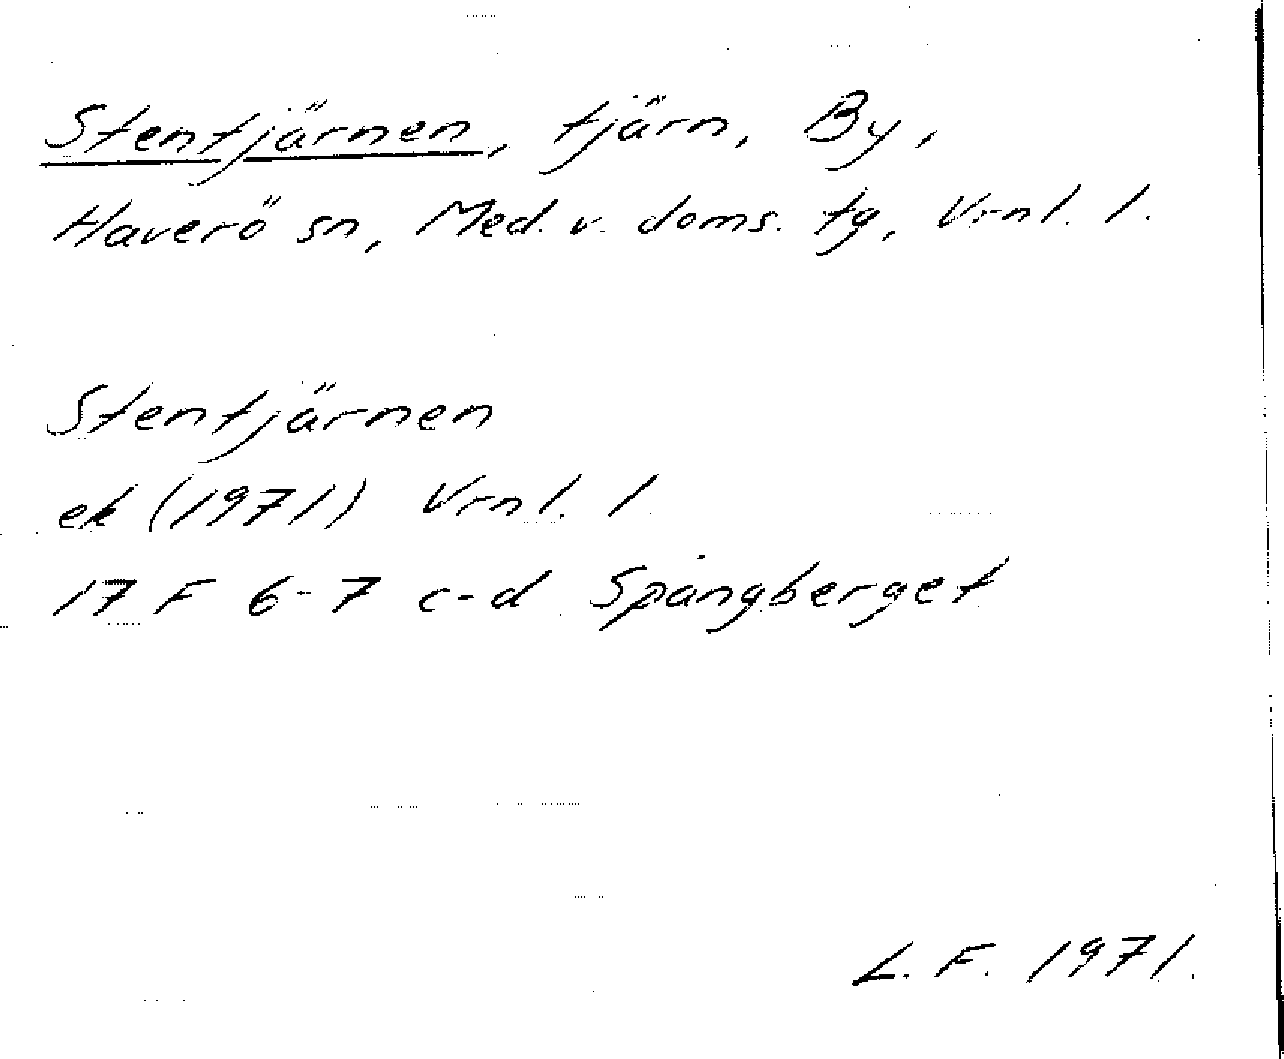 Stentjärnen, tjärn, By,
Haverö sn, Med. v. doms. tg, Vrnl. l.
Stentjärnen
ek (1971) Vrnl. l
17 F 6-7 c-d Spångberget
L. F. 1971.